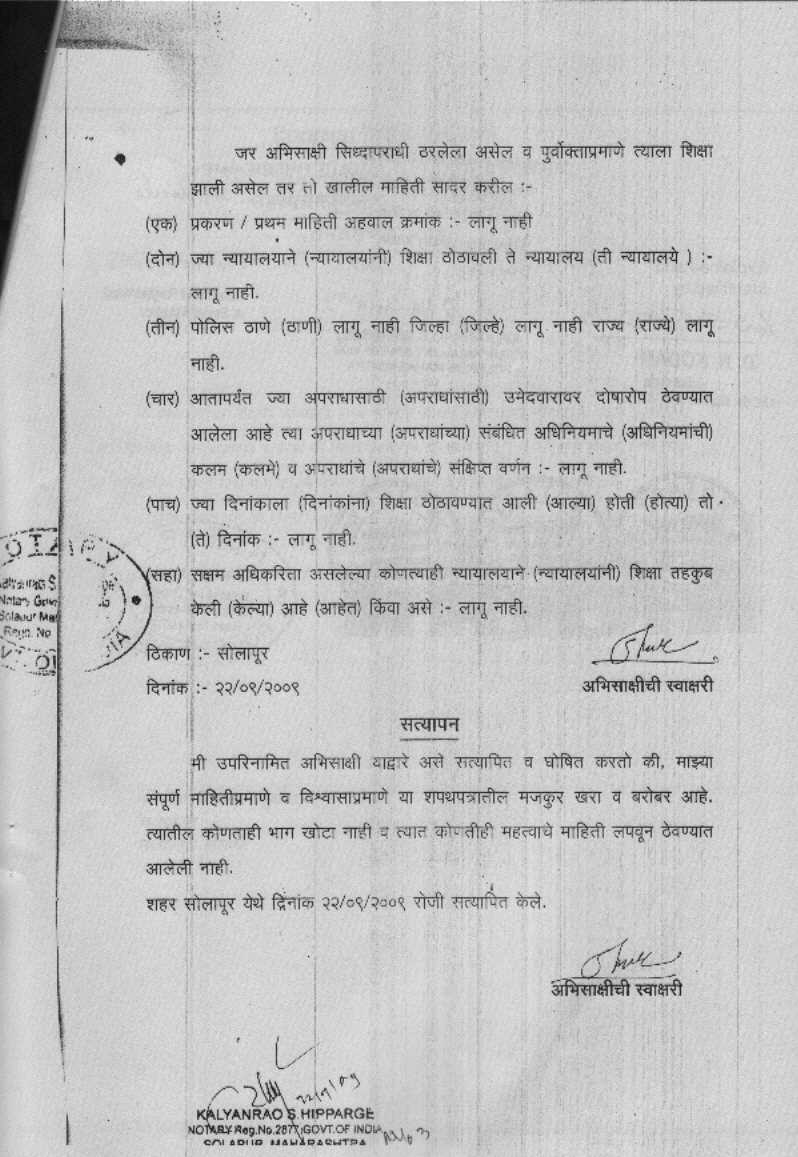 जर अभिसाक्षी सिध्दापराधी ठरलेला असेल व पुर्वोक्ताप्रमाणे त्याला शिक्षा
झाली असेल तर तो खालील माहिती सादर करील :-
(एक) प्रकरण / प्रथम माहिती अहवाल क्रमांक :- लागू नाही
(दोन) ज्या न्यायालयाने (न्यायालयांनी) शिक्षा ठोठावली ते न्यायालय (ती न्यायालये ) :-
लागू नाही.
(तीन) पोलिस ठाणे (ठाणी) लागू नाही जिल्हा (जिल्हे) लागू नाही राज्य (राज्ये) लागू
नाही.
(चार) आतापर्यंत ज्या अपराधासाठी (अपराधांसाठी) उमेदवारावर दोषारोप ठेवण्यात
आलेला आहे त्या अपराधाच्या (अपराधांच्या) संबंधित अधिनियमाचे (अधिनियमांची)
कलम (कलमे) व अपराधांचे (अपराधांचे) संक्षिप्त वर्णन :- लागू नाही.
(पाच) ज्या दिनांकाला (दिनांकांना) शिक्षा ठोठावण्यात आली (आल्या) होती (होत्या) तो
(ते) दिनांक :- लागू नाही.
(सहा) सक्षम अधिकरिता असलेल्या कोणत्याही न्यायालयाने (न्यायालयांनी) शिक्षा तहकुब
केली (केल्या) आहे (आहेत) किंवा असे :- लागू नाही.
ठिकाण :- सोलापूर
दिनांक :- २२/०९/२००९
अभिसाक्षीची स्वाक्षरी
सत्यापन
मी उपरिनामित अभिसाक्षी याद्वारे असे सत्यापित व घोषित करतो की, माझ्या
संपूर्ण माहितीप्रमाणे व विश्वासाप्रमाणे या शपथपत्रातील मजकुर खरा व बरोबर आहे.
त्यातील कोणताही भाग खोटा नाही व त्यात कोणतीही महत्वाचे माहिती लपवून ठेवण्यात
आलेली नाही.
शहर सोलापूर येथे दिनांक २२/०९/२००९ रोजी सत्यापित केले.
अभिसाक्षीची स्वाक्षरी
22/9/09
KALYANRAO S.HIPPARGE
NOTARY Reg.No.2877,GOVT.OF INDIA
SOLAPUR MAHARASHTRA